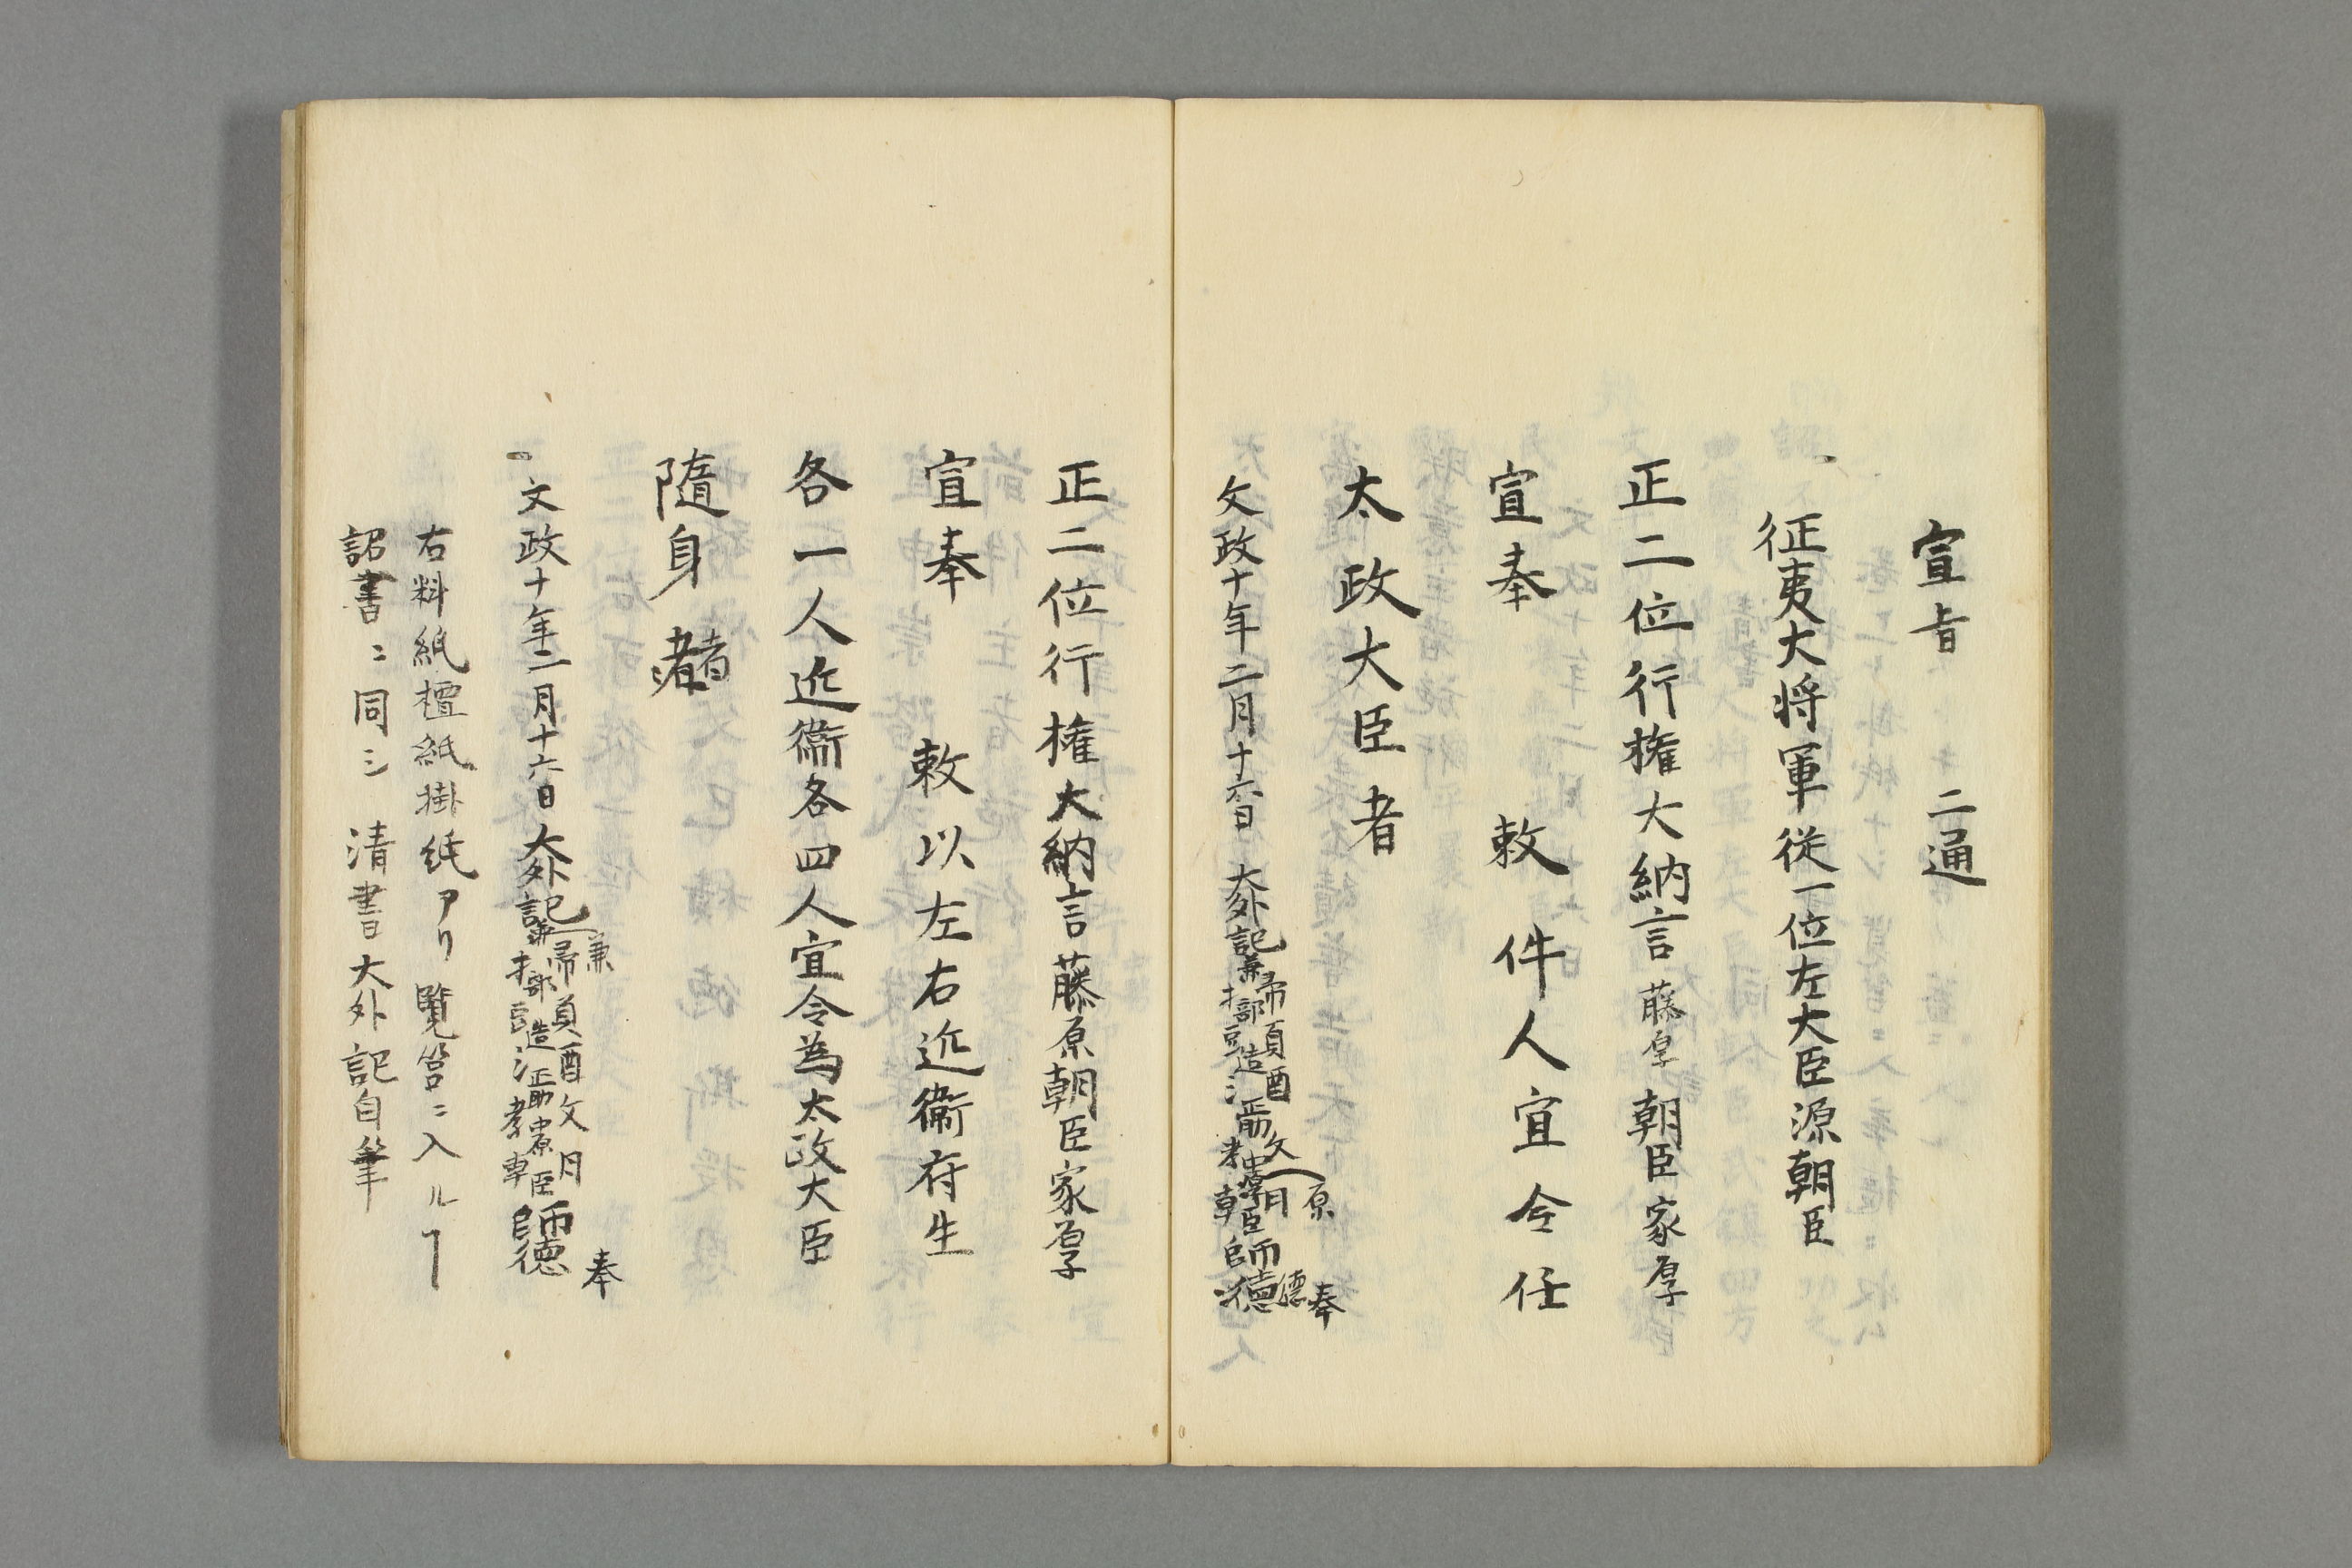 宣旨　二通
征夷大将軍従一位左大臣源朝臣
正二位行権大納言藤原朝臣家厚
宣奉　敕件人宜令任
太政大臣者
文政十年二月十六日　大外記兼掃部頭造酒正中原朝臣師徳奉
正二位行権大納言藤原朝臣家厚
宣奉　敕以左右近衞府生
各一人近衞各四人宜令為太政大臣
隨身者
文政十年二月十六日　大外記兼掃部頭造酒正中原朝臣師徳奉
右料紙檀紙掛紙アリ覧筥ニ入ルヿ
詔書ニ同シ　清書大外記自筆